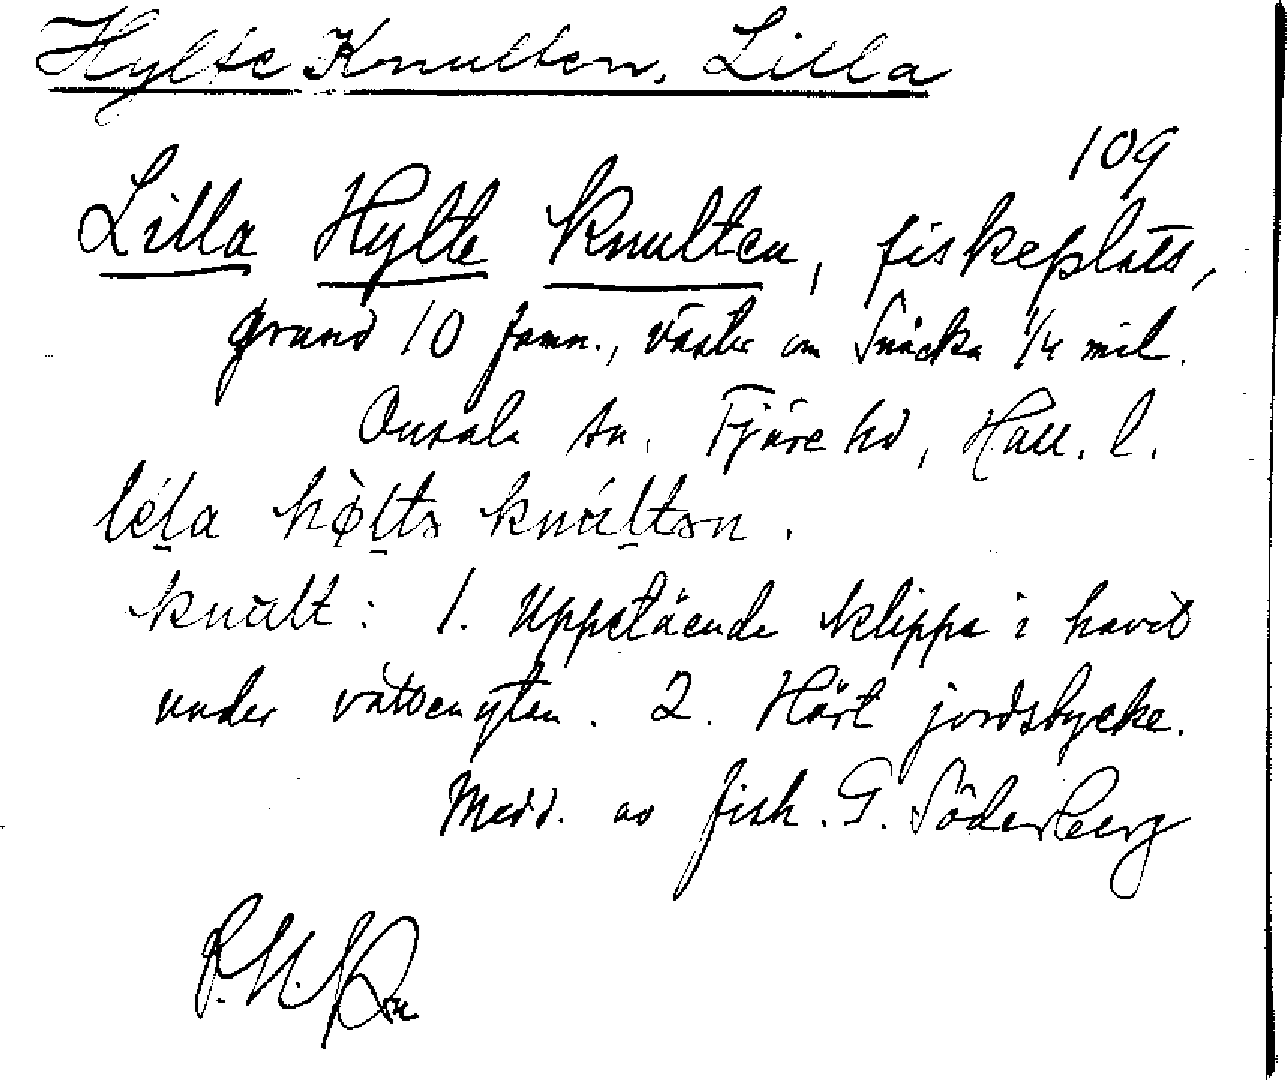 Hylte Knulten, Lilla
109
Lilla Hylte Knulten, fiskeplats,
grund 10 famn., väster om Snäcka 1/4 mil.
Onsala sn. Fjäre hd, Hall. l.
knult: 1. Uppstående klippa i havet
under vattenytan. 2. Hårt jordstycke.
Medd. av fisk. G. Söderberg